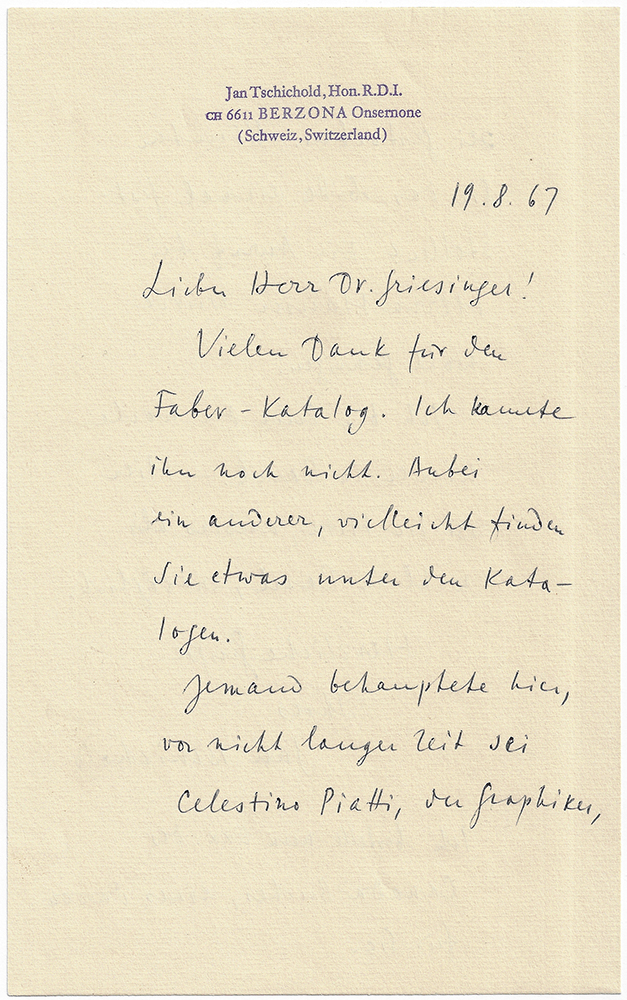 Jan Tschichold, Hon. R.D.I.
CH 6611 BERZONA Onsernone
(Schweiz, Switzerland)
19.8.67
Lieber Herr Dr. Griesinger!
Vielen Dank für den
Faber-Katalog. Ich kannte
ihn noch nicht. Anbei
ein anderer, vielleicht finden
Sie etwas unter den Kata-
logen.
Jemand behauptete hier,
vor nicht langer Zeit sei
Celestino Piatti, der Graphiker,